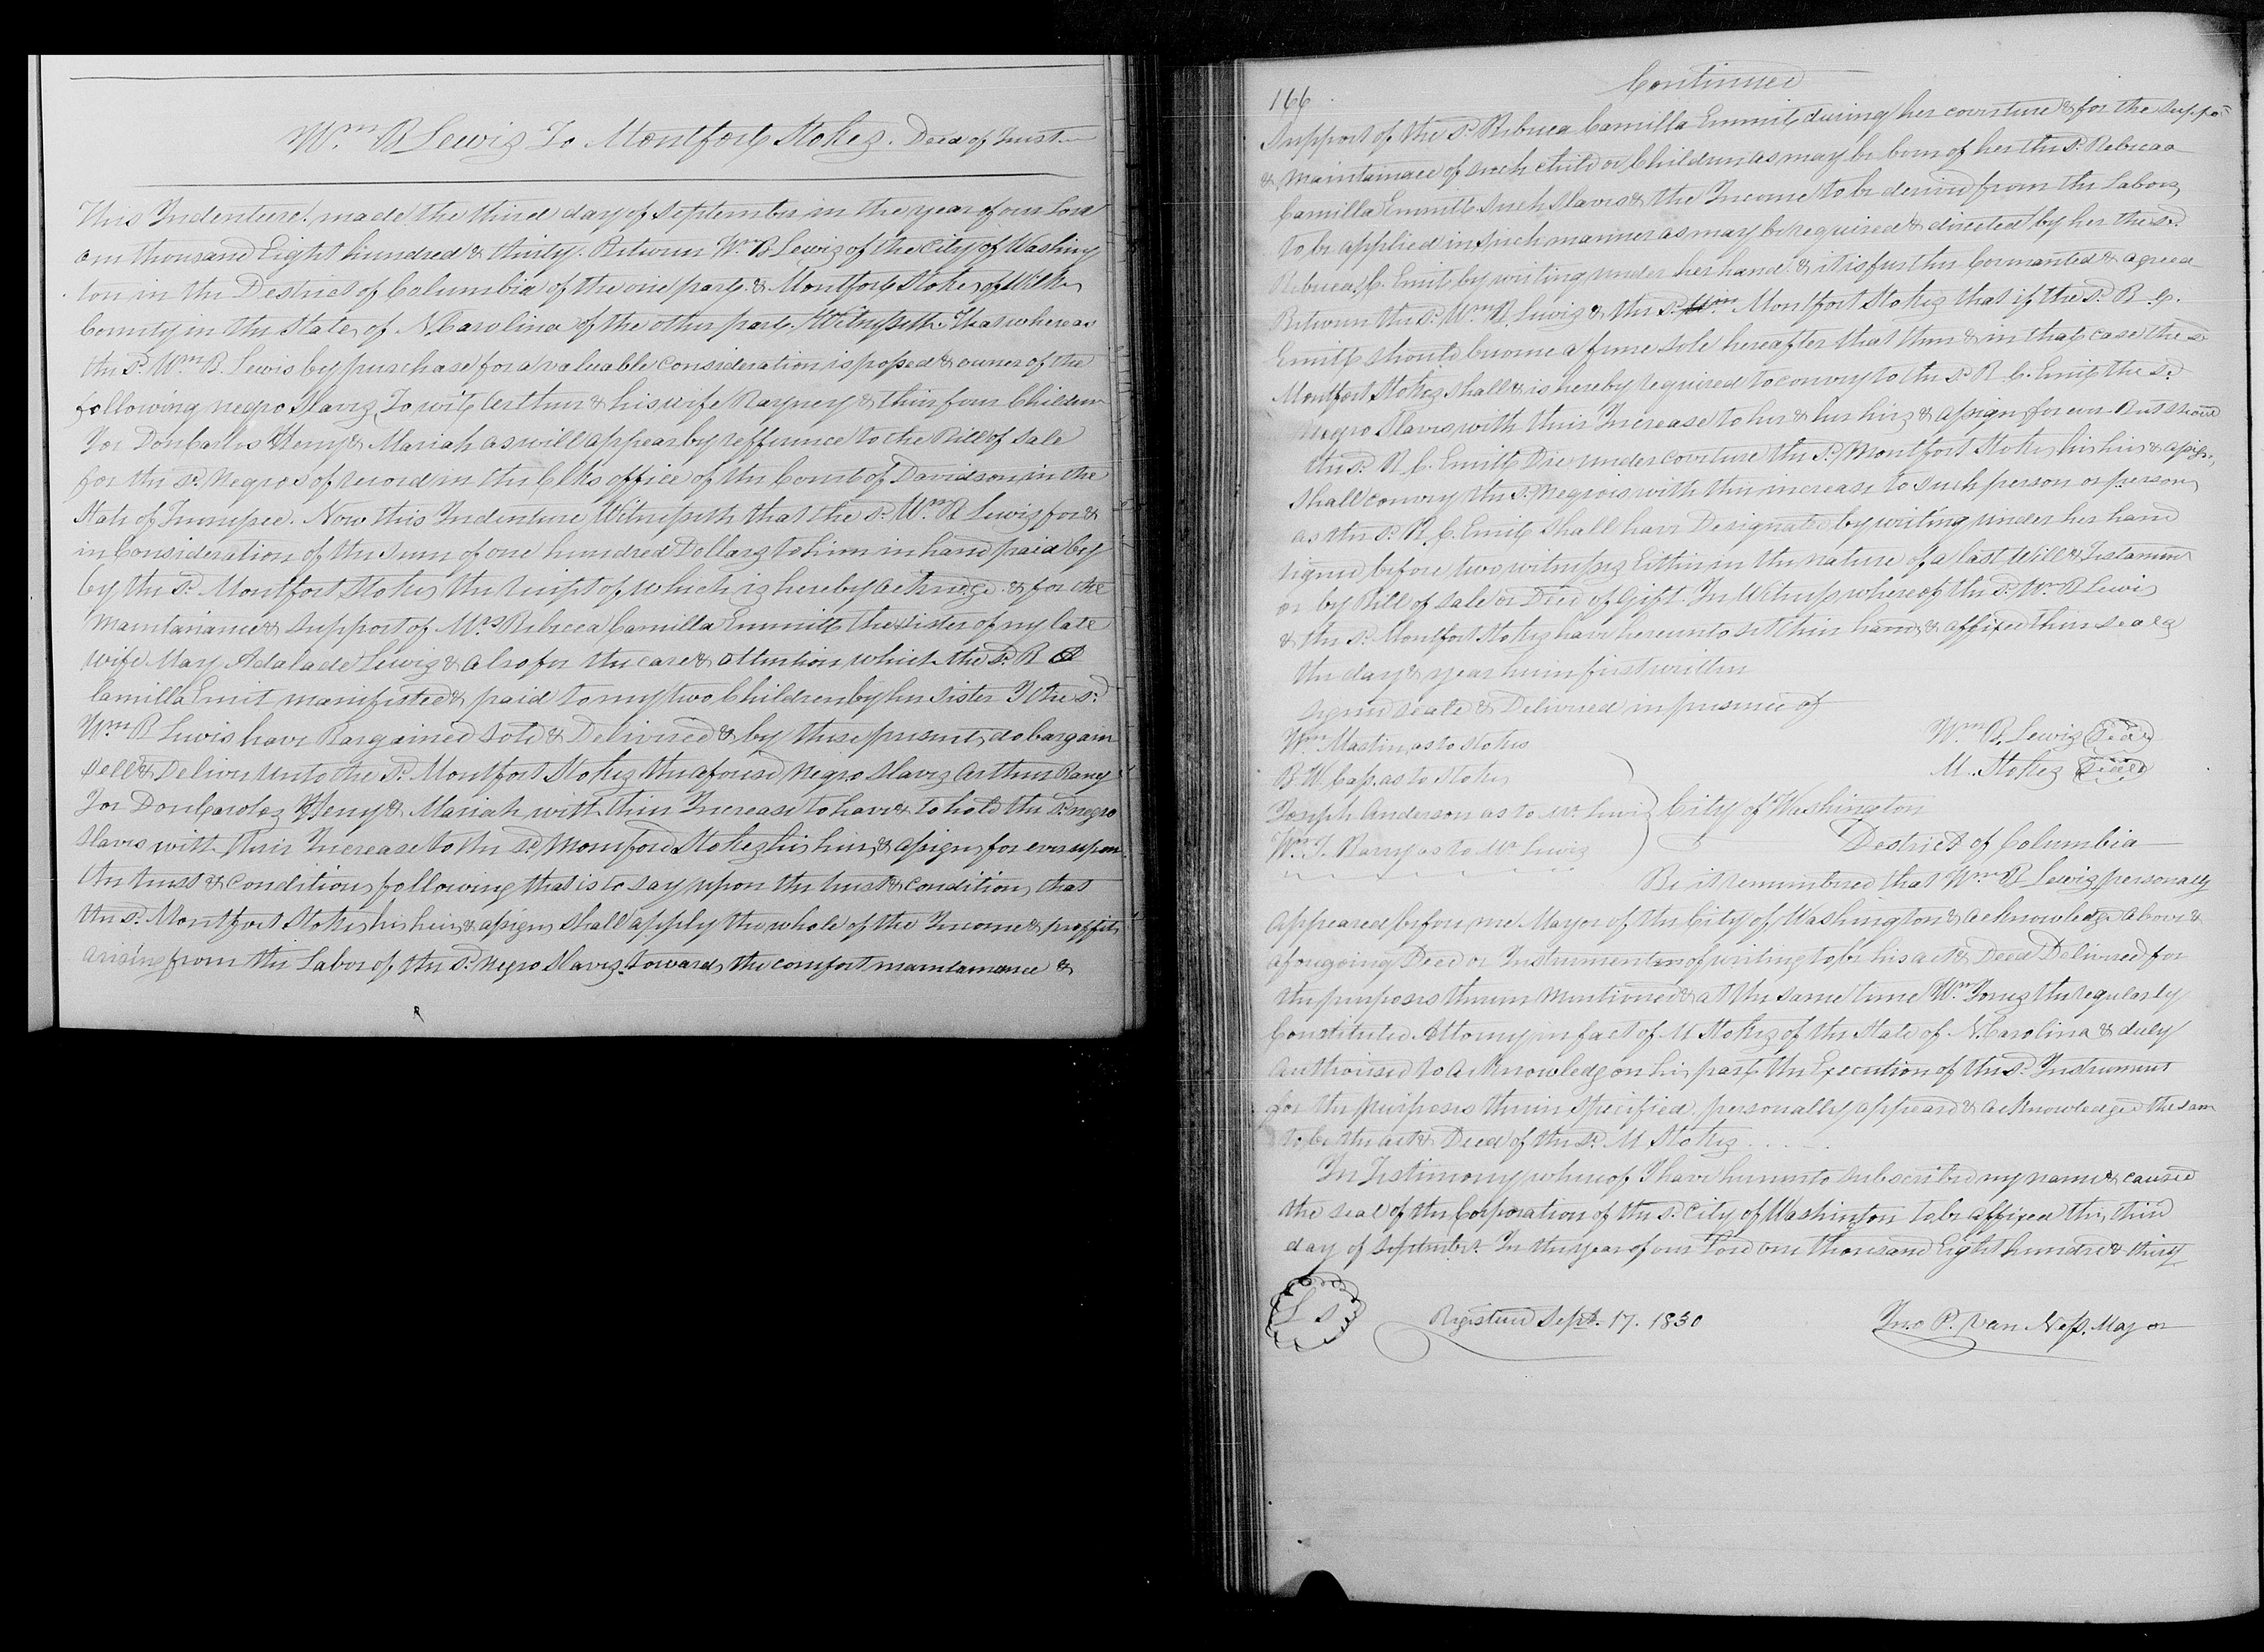 Wm B Lewis To Montfort Stokes. Deed of Trust
This Indenture made the third day of September in the year of our Lord
one thousand Eight hundred & thirty. Between Wm B Lewis of the City of Washing
ton in the Destrict of Columbia of the one part & Montfort Stokes of Wilkes
County in the State of N. Carolina of the other part. Witnesseth That whereas
the sd. Wm B. Lewis by purchase for a valuable consideration is possed & owner of the
following negro Slaves To wit Arthur & his wife Rayney & their four Children
Joe Doncarlos Henry & Mariah as will appear by refference to the Bill of Sale
for the sd. Negroes of record in the Clks office of the County of Davidson in the
State of Tennessee. Now this Indenture Witnesseth that the sd. Wm B Lewis for &
in Consideration of the sum of one hundred Dollars to him in hand paid by
by the sd. Montfort Stokes the receipt of which is hereby acknogd. & for the
maintanance & support of Mrs Rebecca Camilla Emmitt the sister of my late
wife Mary Adalade Lewis & also for the care & attention which the sd. R
Camilla Emit manifisted & paid to my two Children by her sister I the sd.
Wm B Lewis have Bargained sold & Delivired & by these presents do bargain
Sell & Deliver unto the sd. Montfort Stokes the aforesd Negro Slaves Arthur Raney
Joe DonCarolos Henry & Mariah with their Increase to have & to hold the sd. negro
Slaves with their Increase to the sd. Momford Stokes his heirs & assigns for ever upon
the trust & conditions following that is to say uppon the trust & condition, that
the sd. Montfort Stokes his heirs & assigns shall apply the whole of the Income & proffits
arising from the Labor of the sd. Negro Slaves towards the comfort maintainance &
166
Continued
Support of the sd. Rebecca Camilla Emmit during her coverture & for the suppo
& Maintainace of such child or Children as may be born of her the sd. Rebecca
Camilla Emmitt such Slaves & the Income to be derived from the Labors
to be applied in such manner as may be required & directed by her the sd.
Rebecca C. Emit by writing under her hand & it is further Covenanted & agreed
Between the sd. Wm B. Lewis & the sd. Montfort Stokes that if the sd. R. C.
Emitt should become a feme sole hereafter that then & in that case the sd
Montfort Stokes shall & is hereby required to convey to the sd R C. Emit the sd.
Negro Slaves with their Increase to her & her heirs & assigns for ever But should
the sd. R C. Emitt Die under coverture the sd. Montfort Stokes his heirs & assigns
shall convey the sd. Negroes with their increase to such person or persons
as the sd. R. C. Emit shall have Designated by writing under her hand
signed before two witnesses Either in the nature of a last Will & Testament
or by Bill of Sale or Deed of Gift. In Witness whereof the sd. Wm B Lewis
& the sd. Montfort Stokes have hereunto set their hands & affixed their seals
the day & year herein first written
Signed seald & Delivered in presence of
Wm B. Lewis (Seal)
M. Stokes (Seal)
Wm Martin as to Stokes
B. W. Cass. as to Stokes
Joseph Anderson as to Mr Lewis
City of Washington
Destrict of Columbia
Be it remembered that Wm B Lewis personally
Appeared before me Mayor of the City of Washington & acknowledge above &
aforegoing Deed or Instrument of writing to be his act & Deed Delivered for
the purposes therein mentioned & at the same time Wm Jones the regularly
Constituted Attorney in fact of M Stokes of the State of N. Carolina & duly
Authorised to Acknowledge on his part the Execution of the sd. Instrument
for the purposes therein Specified personally appeard & acknowledged the sam
to be the act & Deed of the sd. M Stokes
In Testimony whereof I have hereunto subscribed my name & caused
the seal of the Corporation of the sd. City of Washington to be affixed this third
day of September In the year of our Lord one thousand Eight hundred & thirty
L S
Registered Sept. 17. 1830
Jno P. Van Ness. Mayor